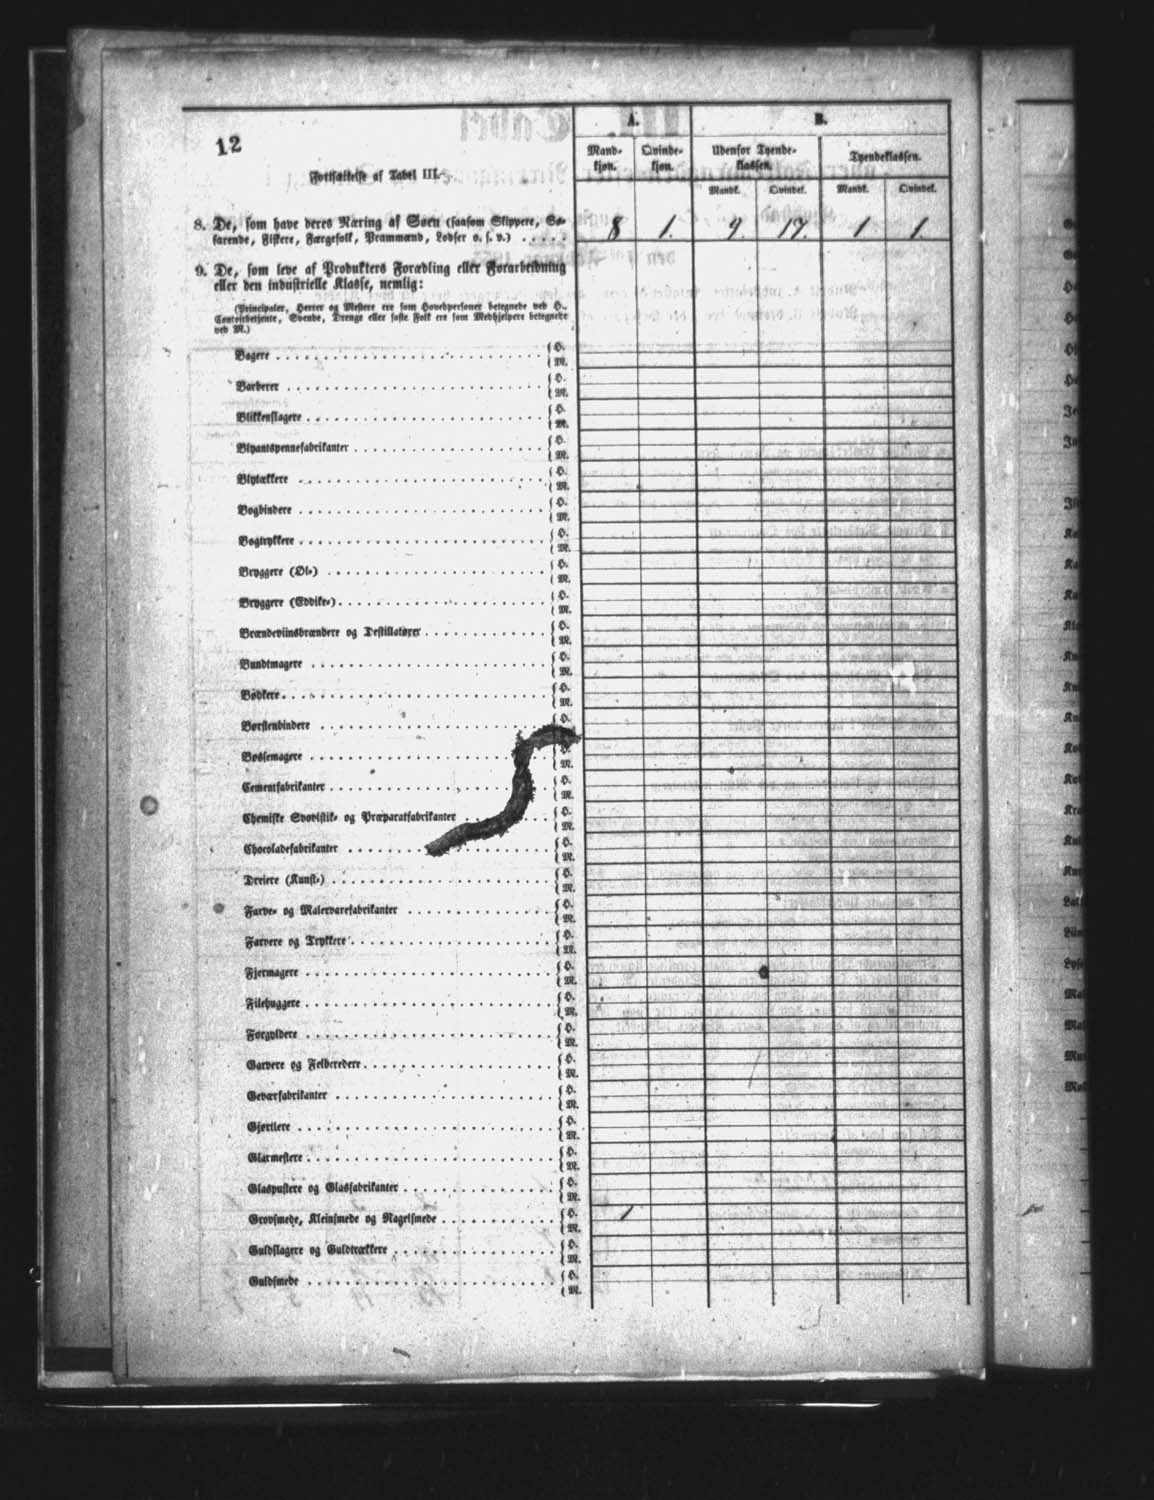 12
Fortsættelse af Tabel III.
A.
B.
Mand-
kjøn.
Qvinde-
kjøn.
Udenfor Tyende-
klassen.
Tyendeklassen.
Mandk.
Qvindek.
Mandk.
Qvindek.
8. De, som have deres Næring af Søen (saasom Skippere, Sø-
farende, Fiskere, Færgefolk, Prammænd, Lodser o. s. v.) . . . . . 8 1. 9. 17. 1 1.
9. De, som leve af Produkters Forædling eller Forarbeidning
eller den industrielle Klasse, nemlig:
(Principaler, Herrer og Mestere ere som Hovedpersoner betegnede ved H.,
Contoirbetjente, Svende, Drenge eller faste Folk ere som Medhjelpere betegnede
ved M.)
Bagere { H.
M.
Barberer { H.
M.
Blikkenslagere { H.
M.
Blyantspennefabrikanter { H.
M.
Blytækkere { H.
M.
Bogbindere { H.
M.
Bogtrykkere { H.
M.
Bryggere (Øl-) { H.
M.
Bryggere (Eddike-) { H.
M.
Brændeviinsbrændere og Destillatører { H.
M.
Bundtmagere { H.
M.
Bødkere { H.
M.
Børstenbindere { H.
Bøssemagere { H.
M.
Cementfabrikanter { H.
M.
Chemiske Svovlstik- og Præparatfabrikanter { H.
M.
Chocoladefabrikanter { H.
M.
Dreiere (Kunst-) { H.
M.
Farve- og Malervarefabrikanter { H.
M.
Farvere og Trykkere { H.
M.
Fjermagere { H.
M.
Filehuggere { H.
M.
Forgyldere { H.
M.
Garvere og Felberedere { H.
M.
Geværfabrikanter { H.
M.
Gjørtlere { H.
M.
Glarmestere { H.
M.
Glaspustere og Glasfabrikanter { H.
M.
Grovsmede, Kleinsmede og Nagelsmede { H. 1
M.
Guldslagere og Guldtrækkere { H.
M.
Guldsmede { H.
M.